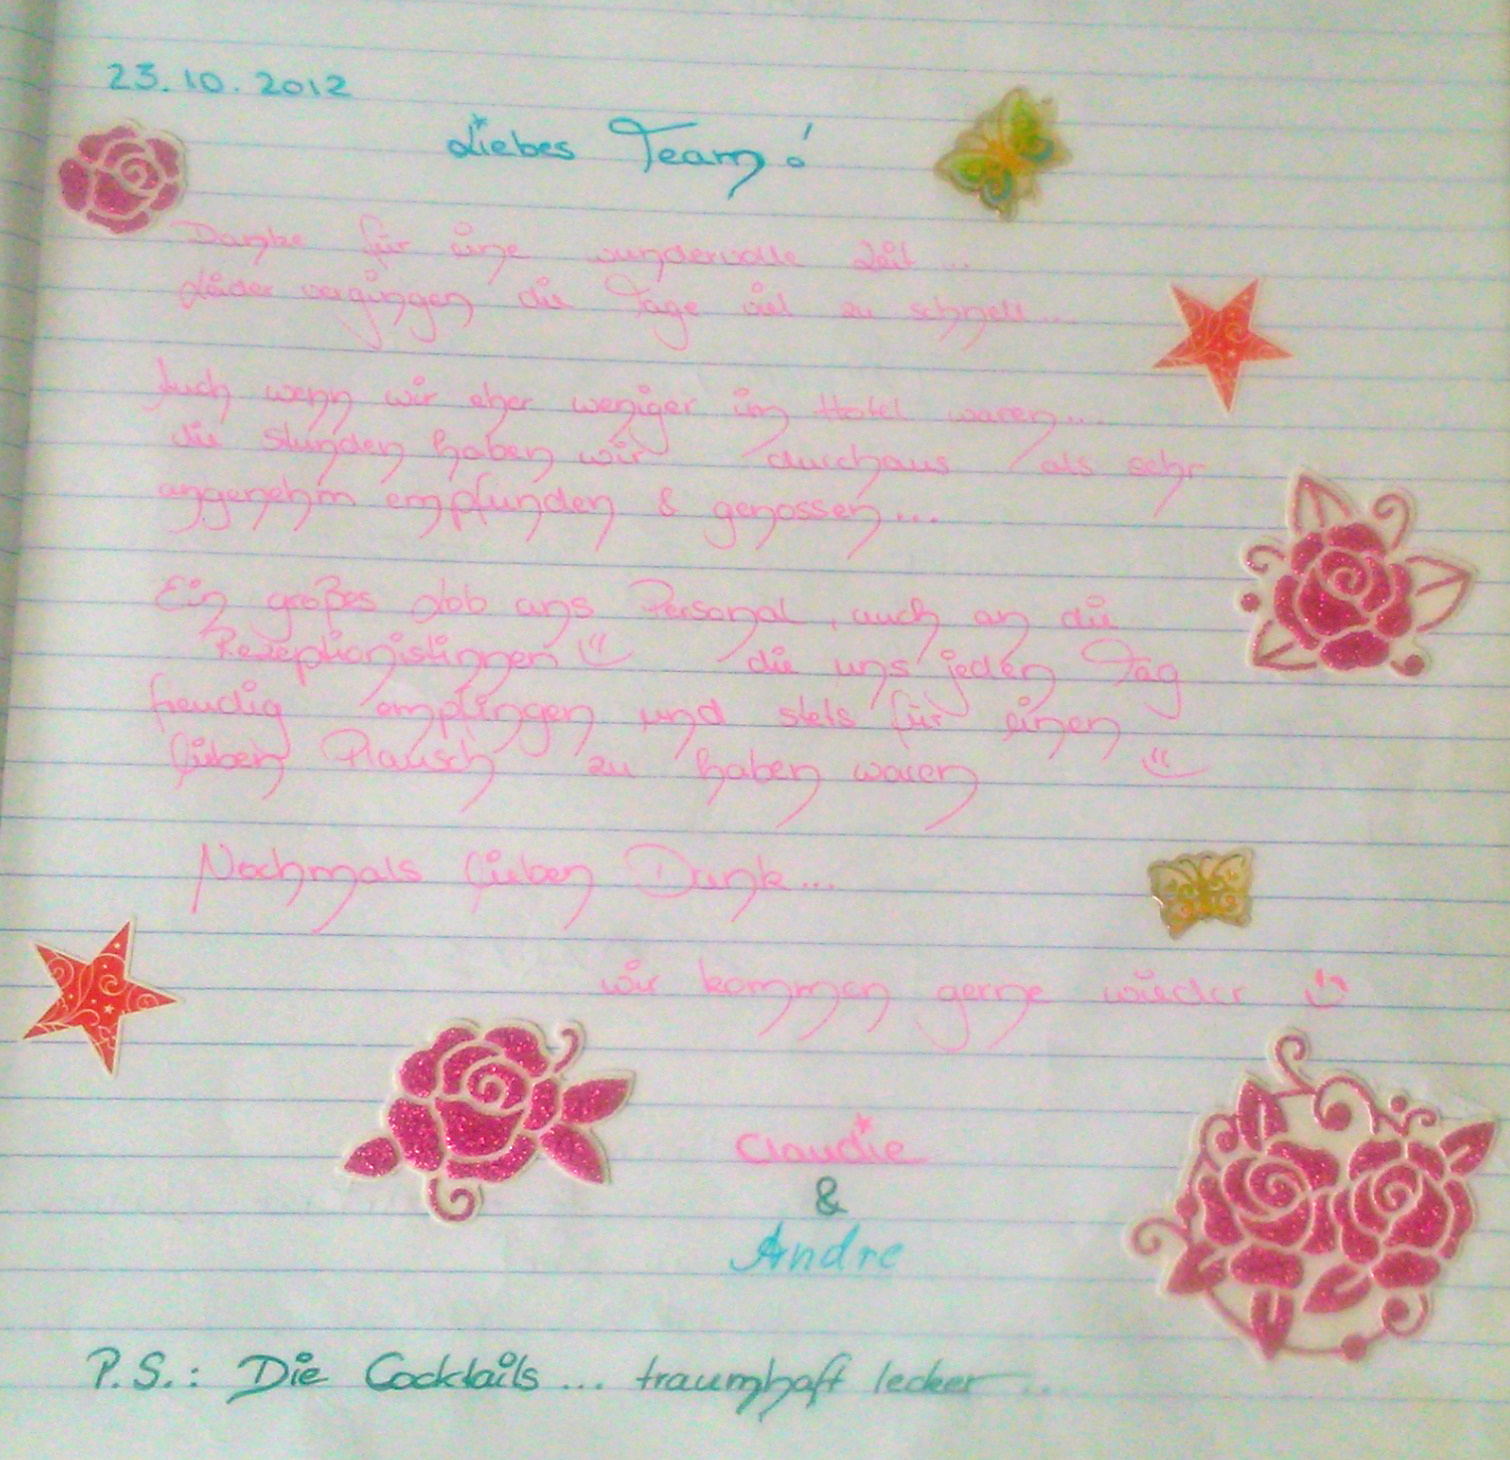 23.10.2012
Liebes Team!
Danke für eine wundervolle Zeit...
Leider vergingen die Tage viel zu schnell...
Auch wenn wir eher weniger im Hotel waren...
die Stunden haben wir durchaus als sehr
angenehm empfunden & genossen...
Ein großes Lob ans Personal, auch an die
Rezeptionistinnen die uns jeden Tag
freudig empfingen und stets für einen
lieben Plausch zu haben waren
Nochmals lieben Dank...
wir kommen gerne wieder
Claudie
&
Andre
P.S.: Die Cocktails... traumhaft lecker...